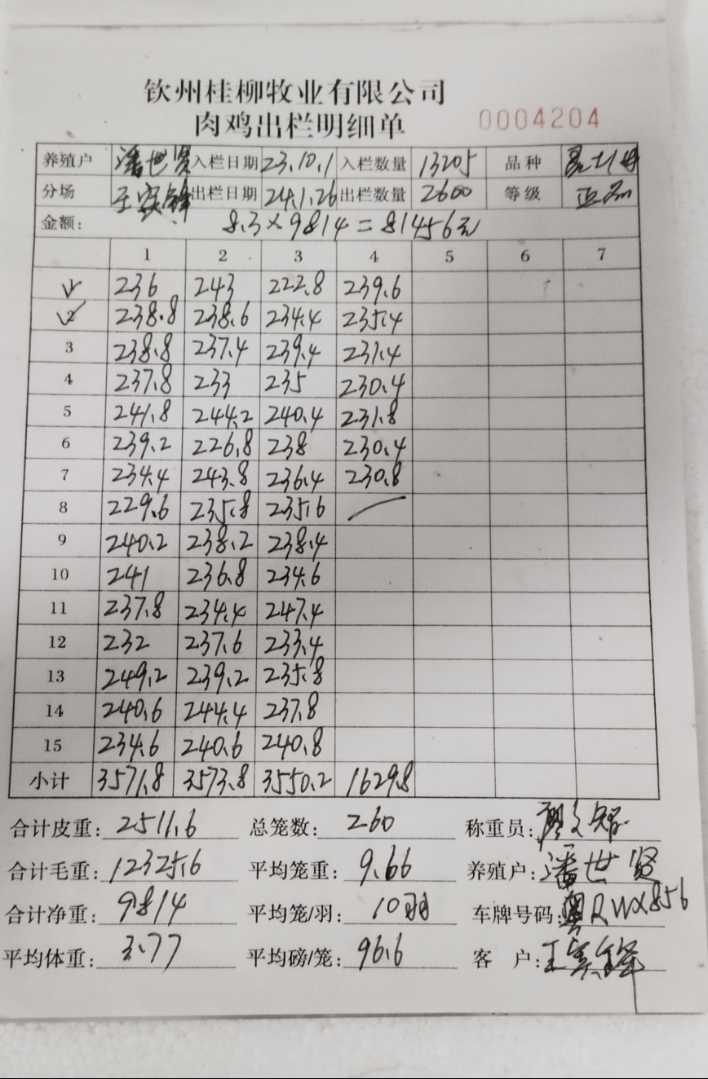 钦州桂柳牧业有限公司
肉鸡出栏明细单 0004204
养殖户 潘世贤 入栏日期 23.10.1 入栏数量 13205 品种
分场 出栏日期 24.1.26 出栏数量 2600 等级 正品
金额: 8.3×9814=81456元
1 2 3 4 5 6 7
1 236 243 222.8 239.6
2 238.8 238.6 234.4 235.4
3 238.8 237.4 239.4 231.4
4 237.8 233 235 230.4
5 241.8 244.2 240.4 231.8
6 239.2 226.8 238 230.4
7 234.4 243.8 236.4 230.8
8 229.6 235.8 235.6
9 240.2 238.2 238.4
10 241 236.8 234.6
11 237.8 234.4 247.4
12 232 237.6 233.4
13 249.2 239.2 235.8
14 240.6 244.4 237.8
15 234.6 240.6 240.8
小计 3571.8 3573.8 3550.2 1629.8
合计皮重: 2511.6 总笼数: 260 称重员:
合计毛重: 12325.6 平均笼重: 9.66 养殖户: 潘世贤
合计净重: 9814 平均笼/羽: 10羽 车牌号码: 粤RWX856
平均体重: 3.77 平均磅/笼: 96.6 客 户: